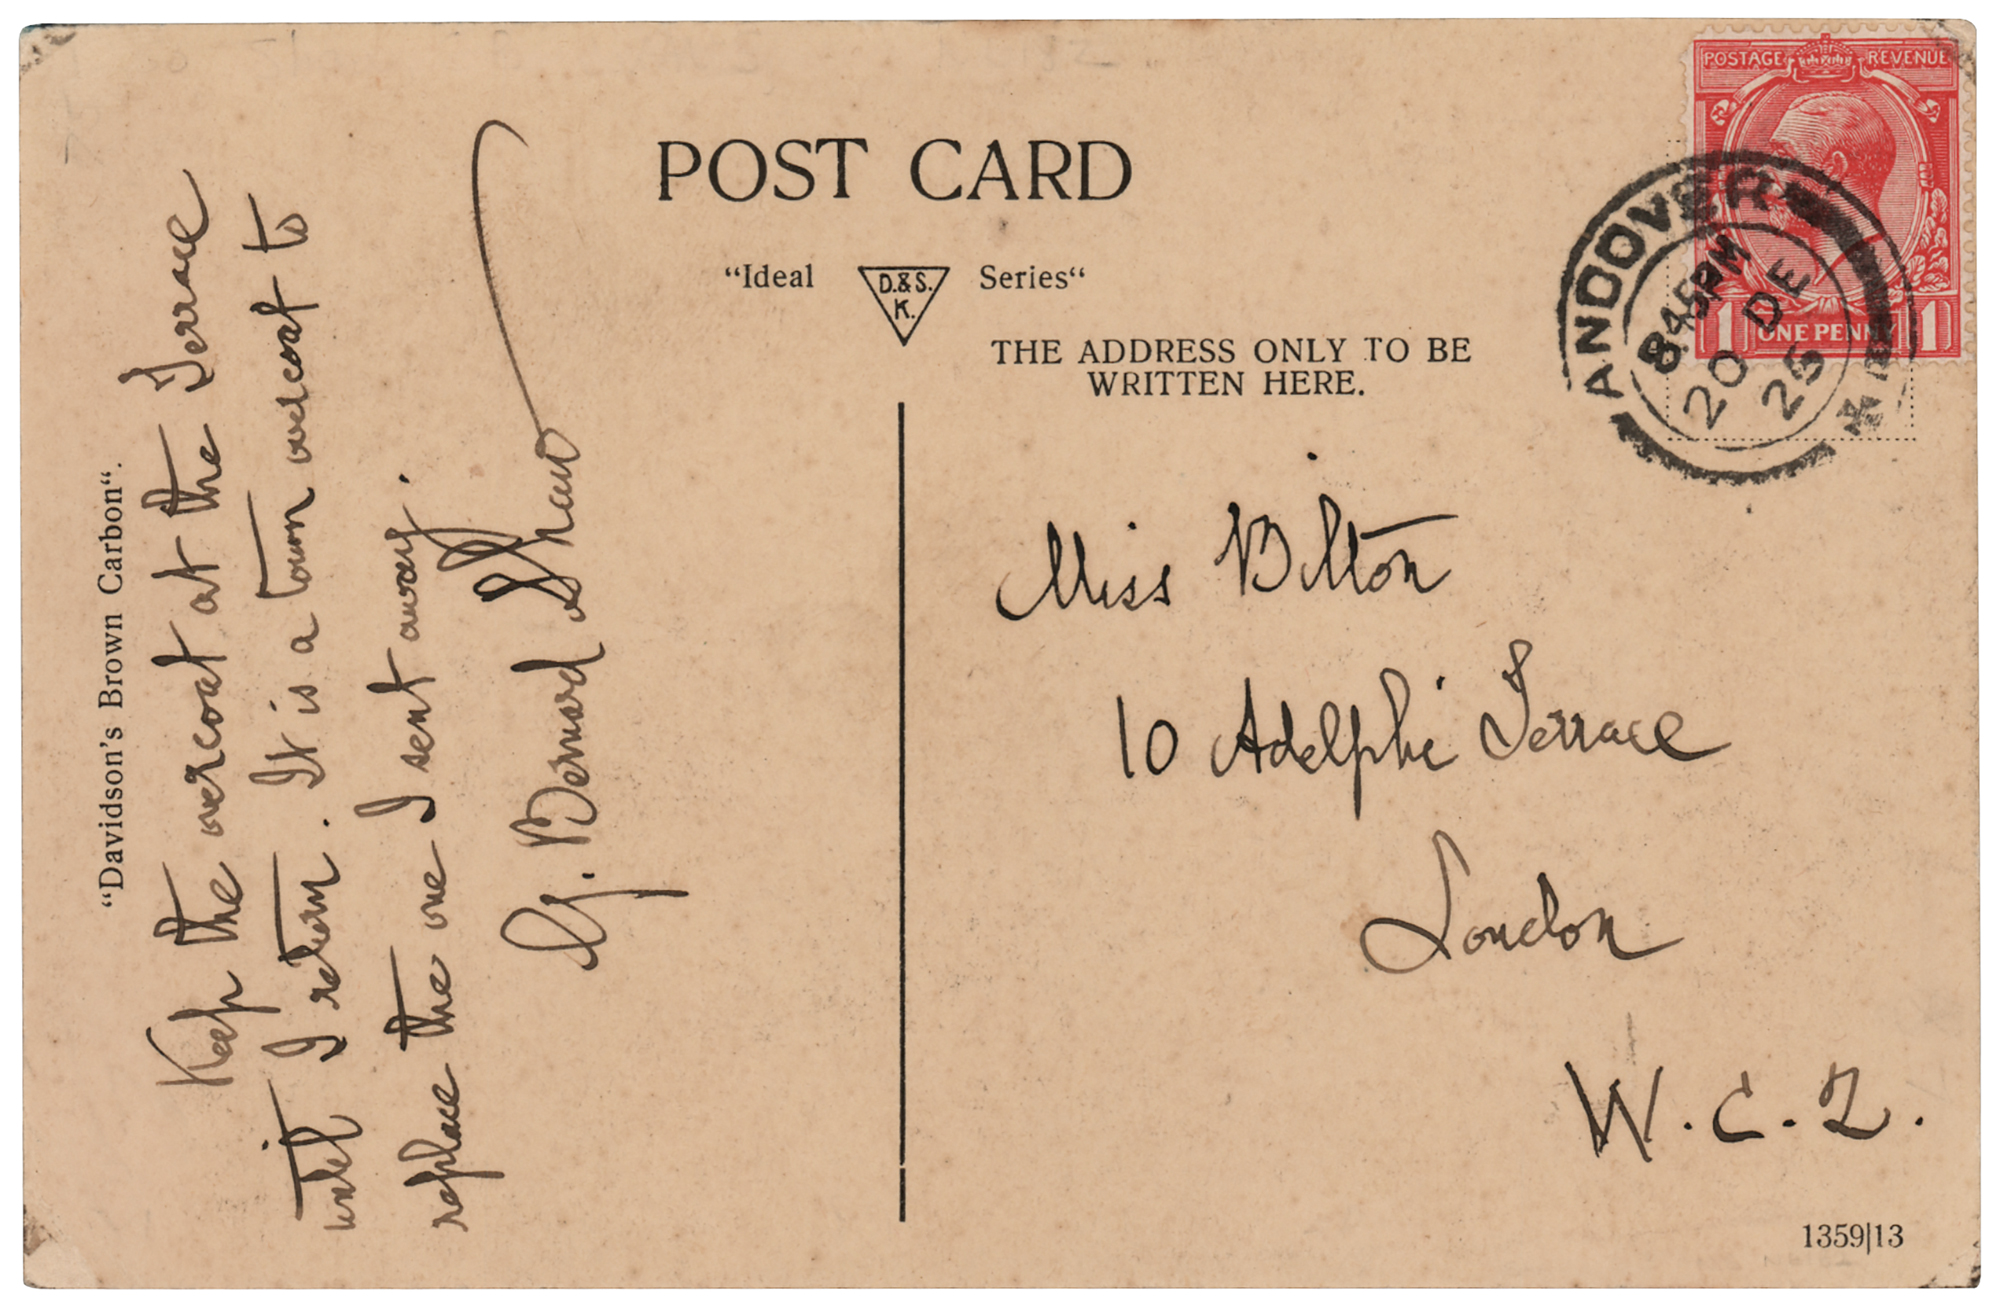 "Davidson's Brown Carbon".
Keep the overcoat at the Terrace
until I return. It is a town overcoat to
replace the one I sent away.
G. Bernard Shaw
POST CARD
"Ideal D.&S. K. Series"
THE ADDRESS ONLY TO BE
WRITTEN HERE.
POSTAGE REVENUE
1 ONE PENNY 1
ANDOVER
845PM
20 DE
25
Miss Bilton
10 Adelphi Terrace
London
W.C.2.
1359|13